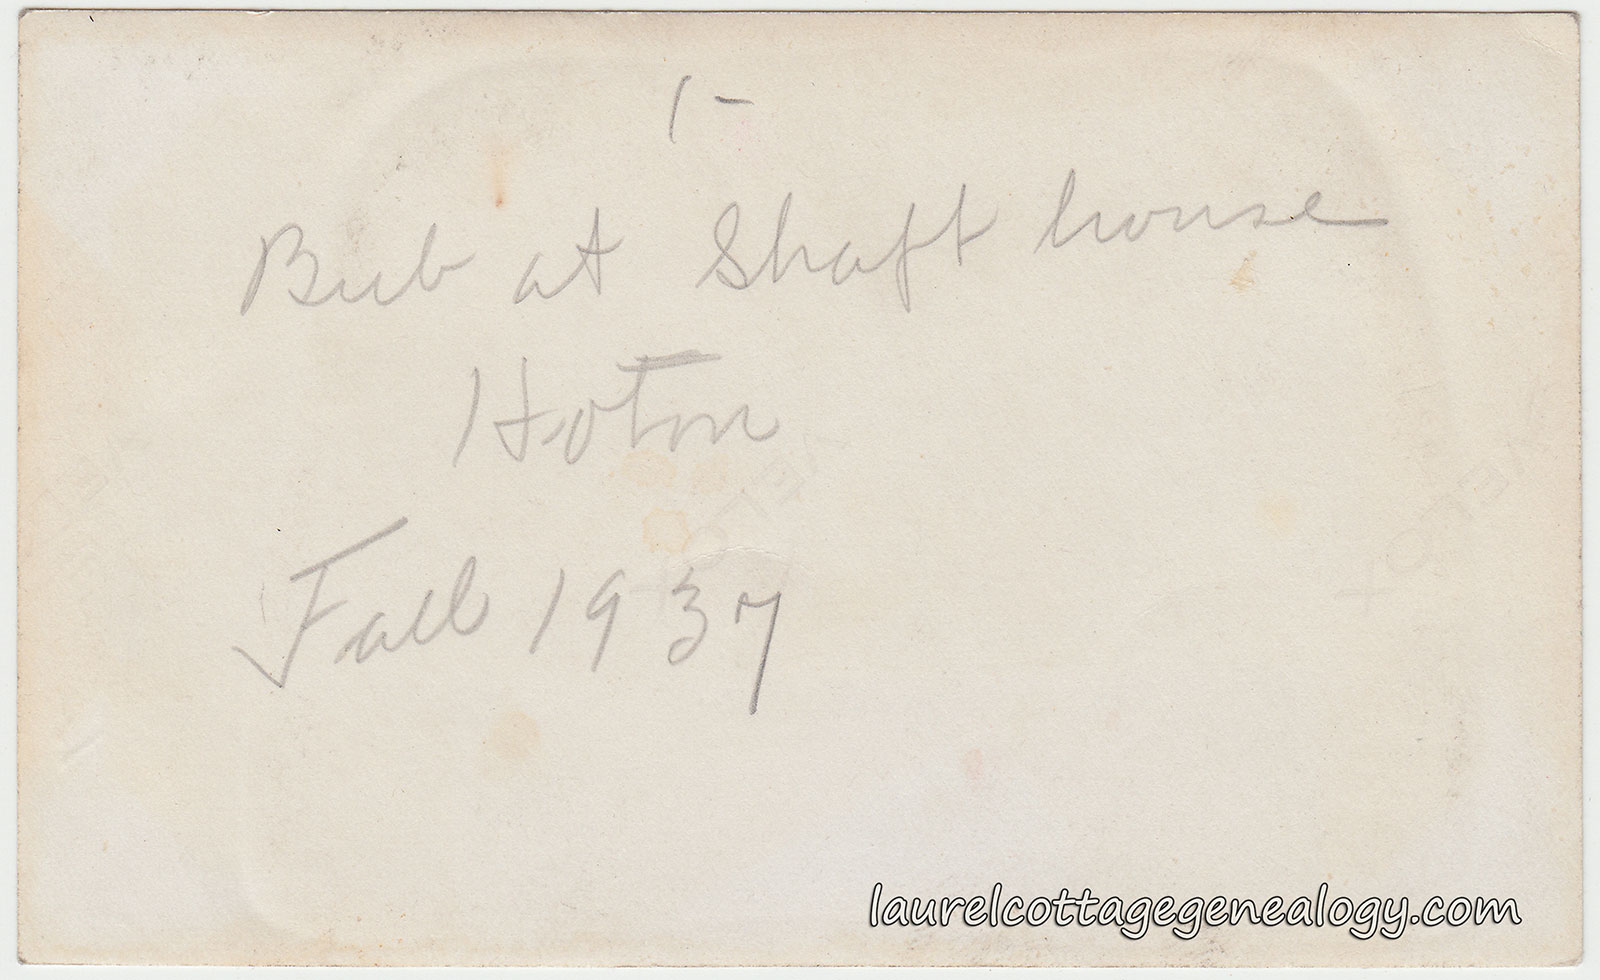 1-
Bub at Shaft house
Hoton
Fall 1937
VELOX
VELOX
laurelcottagegenealogy.com